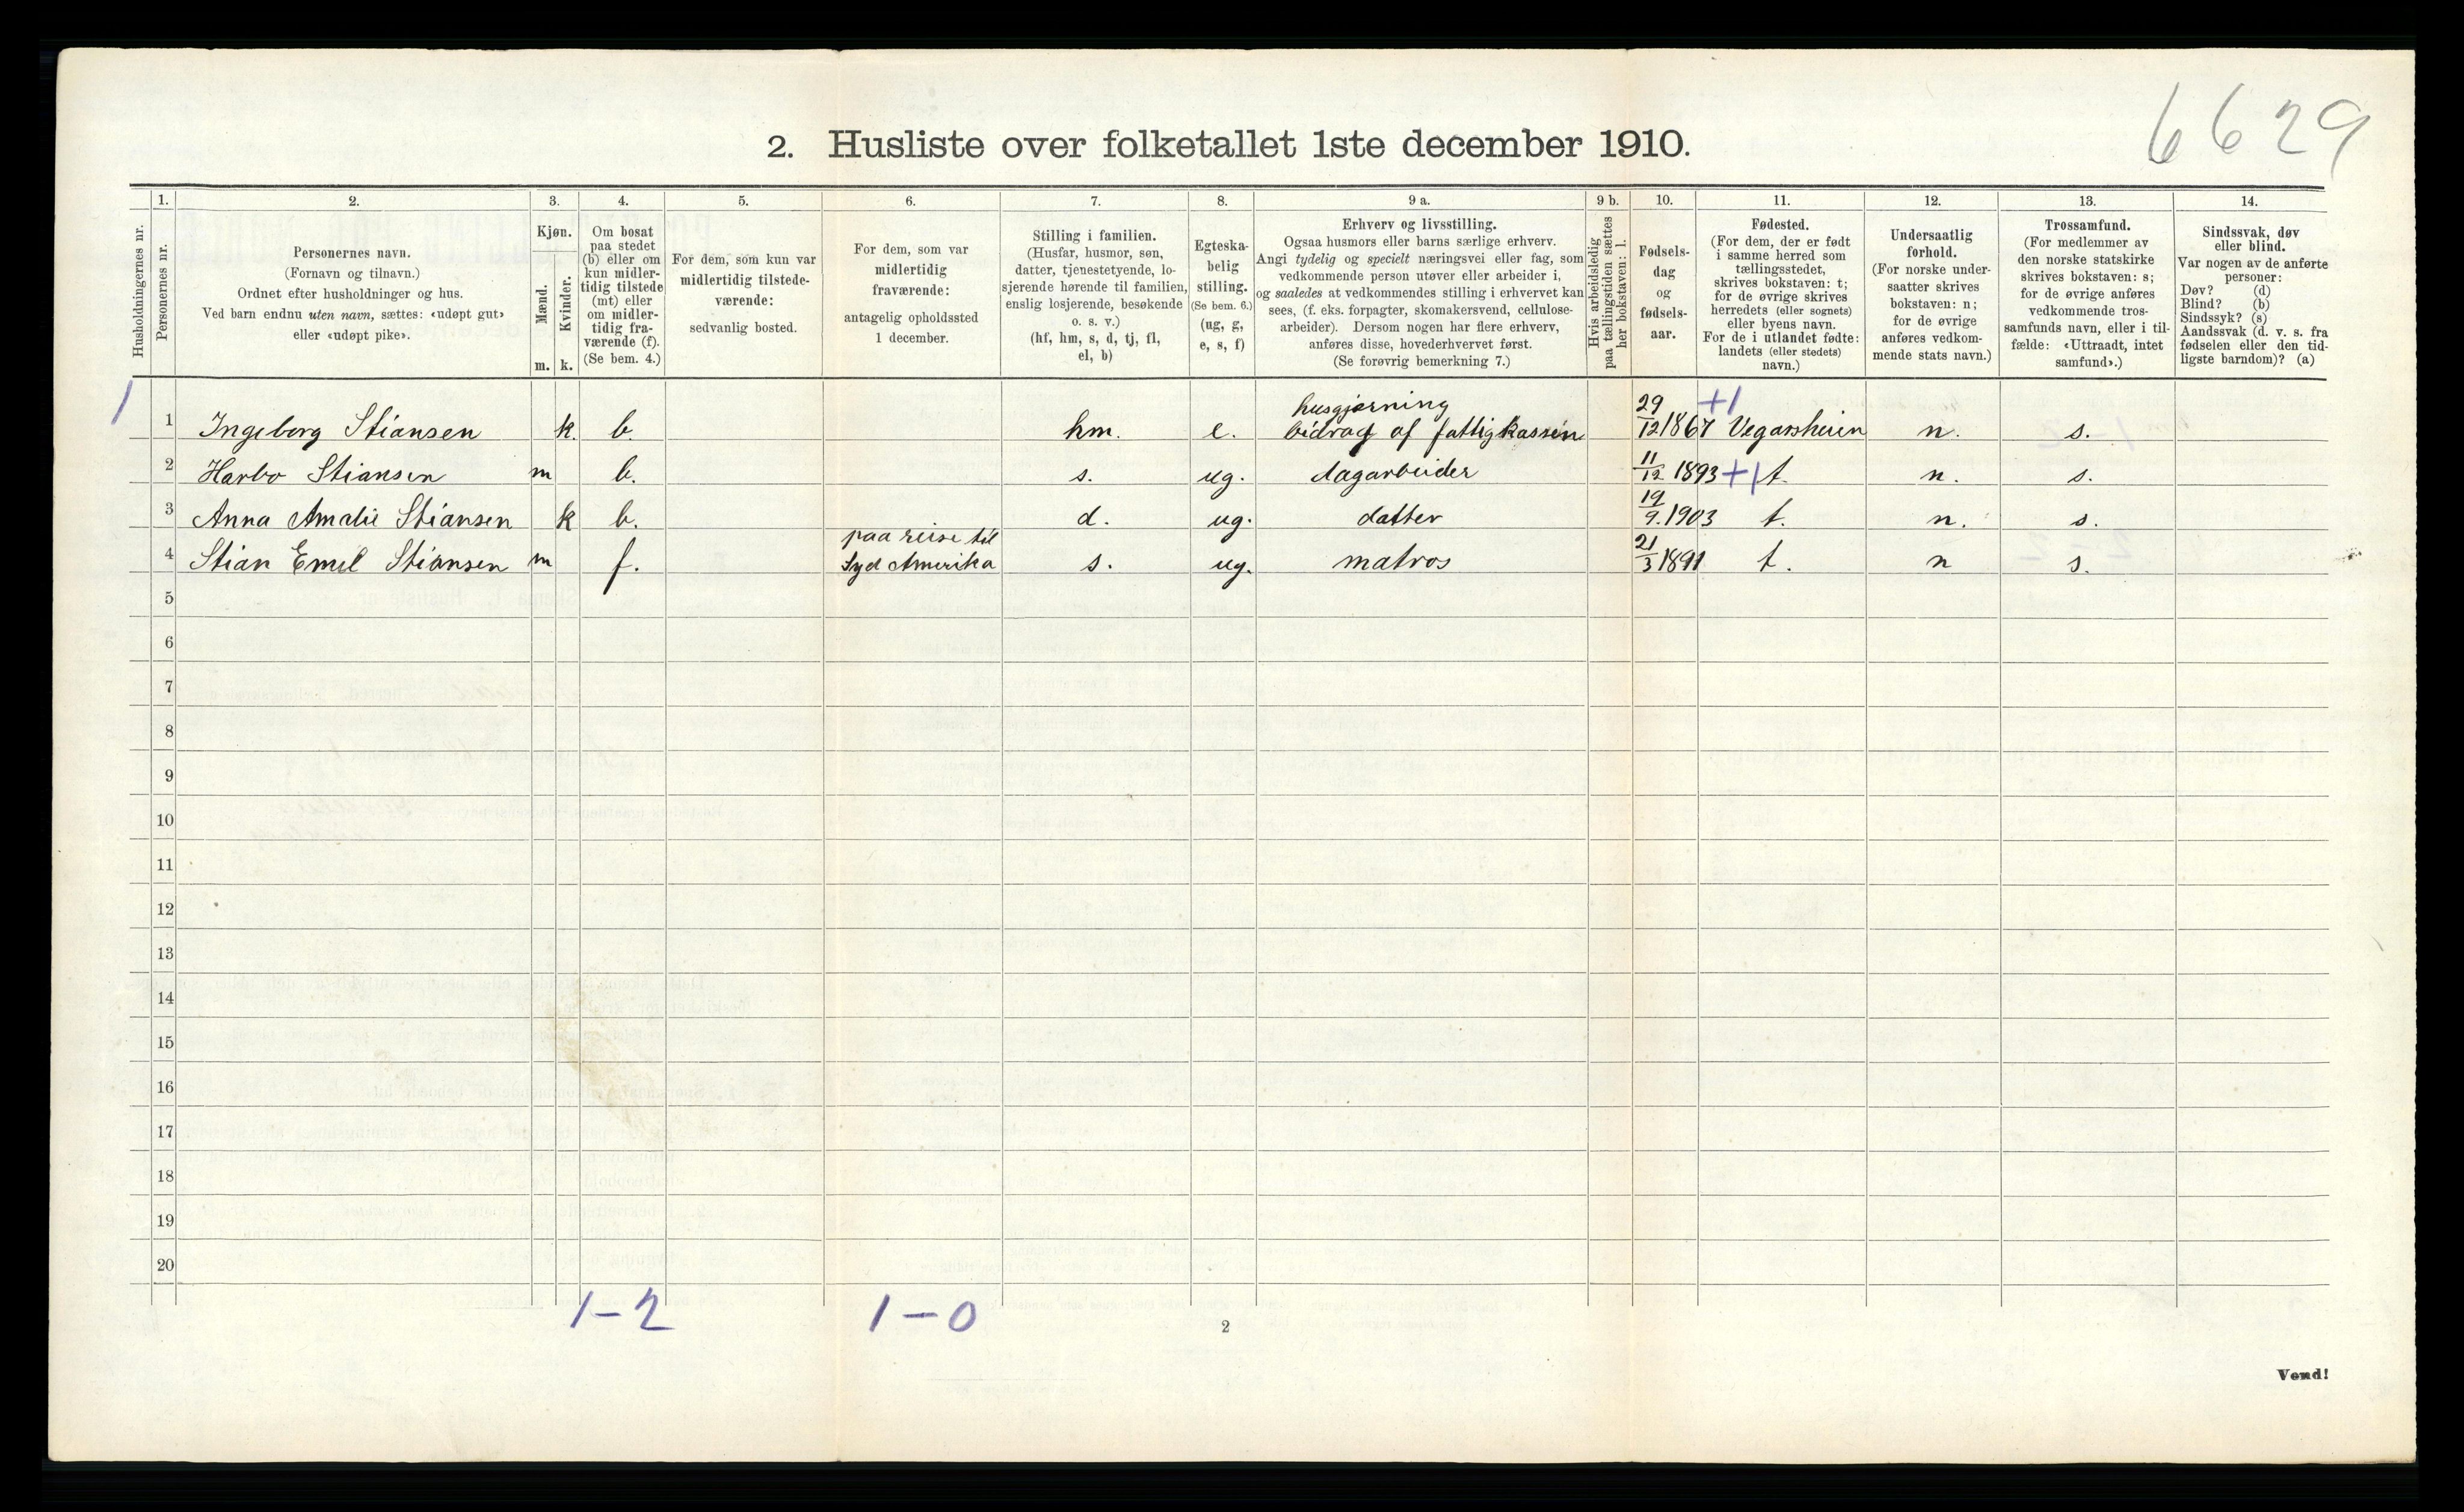 6629
2. Husliste over folketallet 1ste december 1910.
Husholdningernes nr.
1.
Personernes nr.
2.
Personernes navn.
(Fornavn og tilnavn.)
Ordnet efter husholdninger og hus.
Ved barn endnu uten navn, sættes: «udøpt gut»
eller «udøpt pike».
3.
Kjøn.
Mænd.
Kvinder.
m. k.
4.
Om bosat
paa stedet
(b) eller om
kun midler-
tidig tilstede
(mt) eller
om midler-
tidig fra-
værende (f).
(Se bem. 4.)
5.
For dem, som kun var
midlertidig tilstede-
værende:
sedvanlig bosted.
6.
For dem, som var
midlertidig
fraværende:
antagelig opholdssted
1 december.
7.
Stilling i familien.
(Husfar, husmor, søn,
datter, tjenestetyende, lo-
sjerende hørende til familien,
enslig losjerende, besøkende
o. s. v.)
(hf, hm, s, d, tj, fl,
el, b)
8.
Egteska-
belig
stilling.
(Se bem. 6.)
(ug, g,
e, s, f)
9 a.
Erhverv og livsstilling.
Ogsaa husmors eller barns særlige erhverv.
Angi tydelig og specielt næringsvei eller fag, som
vedkommende person utøver eller arbeider i,
og saaledes at vedkommendes stilling i erhvervet kan
sees, (f. eks. forpagter, skomakersvend, cellulose-
arbeider). Dersom nogen har flere erhverv,
anføres disse, hovederhvervet først.
(Se forøvrig bemerkning 7.)
9 b.
Hvis arbeidsledig
paa tællingstiden sættes
her bokstaven: l.
10.
Fødsels-
dag
og
fødsels-
aar.
11.
Fødested.
(For dem, der er født
i samme herred som
tællingsstedet,
skrives bokstaven: t;
for de øvrige skrives
herredets (eller sognets)
eller byens navn.
For de i utlandet fødte:
landets (eller stedets)
navn.)
12.
Undersaatlig
forhold.
(For norske under-
saatter skrives
bokstaven: n;
for de øvrige
anføres vedkom-
mende stats navn.)
13.
Trossamfund.
(For medlemmer av
den norske statskirke
skrives bokstaven: s;
for de øvrige anføres
vedkommende tros-
samfunds navn, eller i til-
fælde: «Uttraadt, intet
samfund».)
14.
Sindssvak, døv
eller blind.
Var nogen av de anførte
personer:
Døv? (d)
Blind? (b)
Sindssyk? (s)
Aandssvak (d. v. s. fra
fødselen eller den tid-
ligste barndom)? (a)
husgjerning 29 +1
1 1 Ingeborg Stiansen k. b. hm. e. bidrag af fattigkassen 12 1867 Vegarsheien n. s.
2 Harbo Stiansen m b. s. ug. dagarbeider 11/12 1893 +1 t. n. s.
3 Anna Amalie Stiansen k b. d. ug. datter 19/9. 1903 t. n. s.
paa reise til
4 Stian Emil Stiansen m f. Syd Amerika s. ug. matros 21/3 1891 t. n s.
5
6
7
8
9
10
11
12
13
14
15
16
17
18
19
20
1-2 1-0
2
Vend!